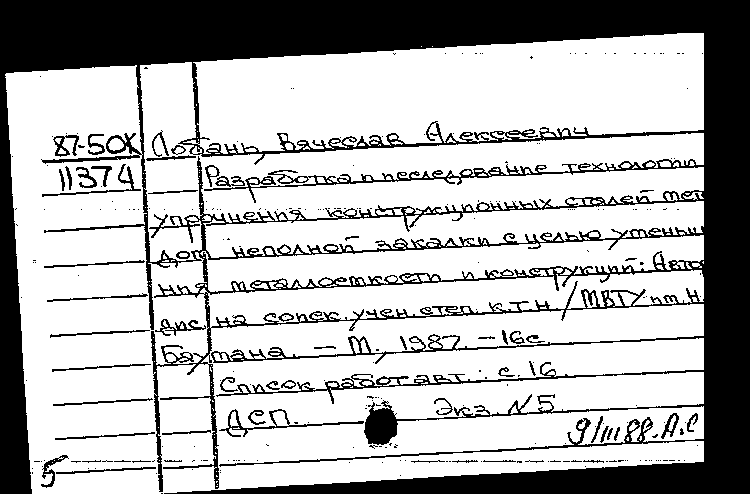 87-50К Лобань, Вячеслав Алексеевич
11374 Разработка и исследование технологии
упрочнения конструкционных сталей мето
дом неполной закалки с целью уменьш
ния металлоемкости и конструкций: Автор
дис. на соиск. учен. степ. к.т.н. / МВТУ им. Н.
Баумана. — М., 1987. — 16с.
Список работ авт.: с. 16.
ДСП. Экз. №5
9/III 88. А.С
5